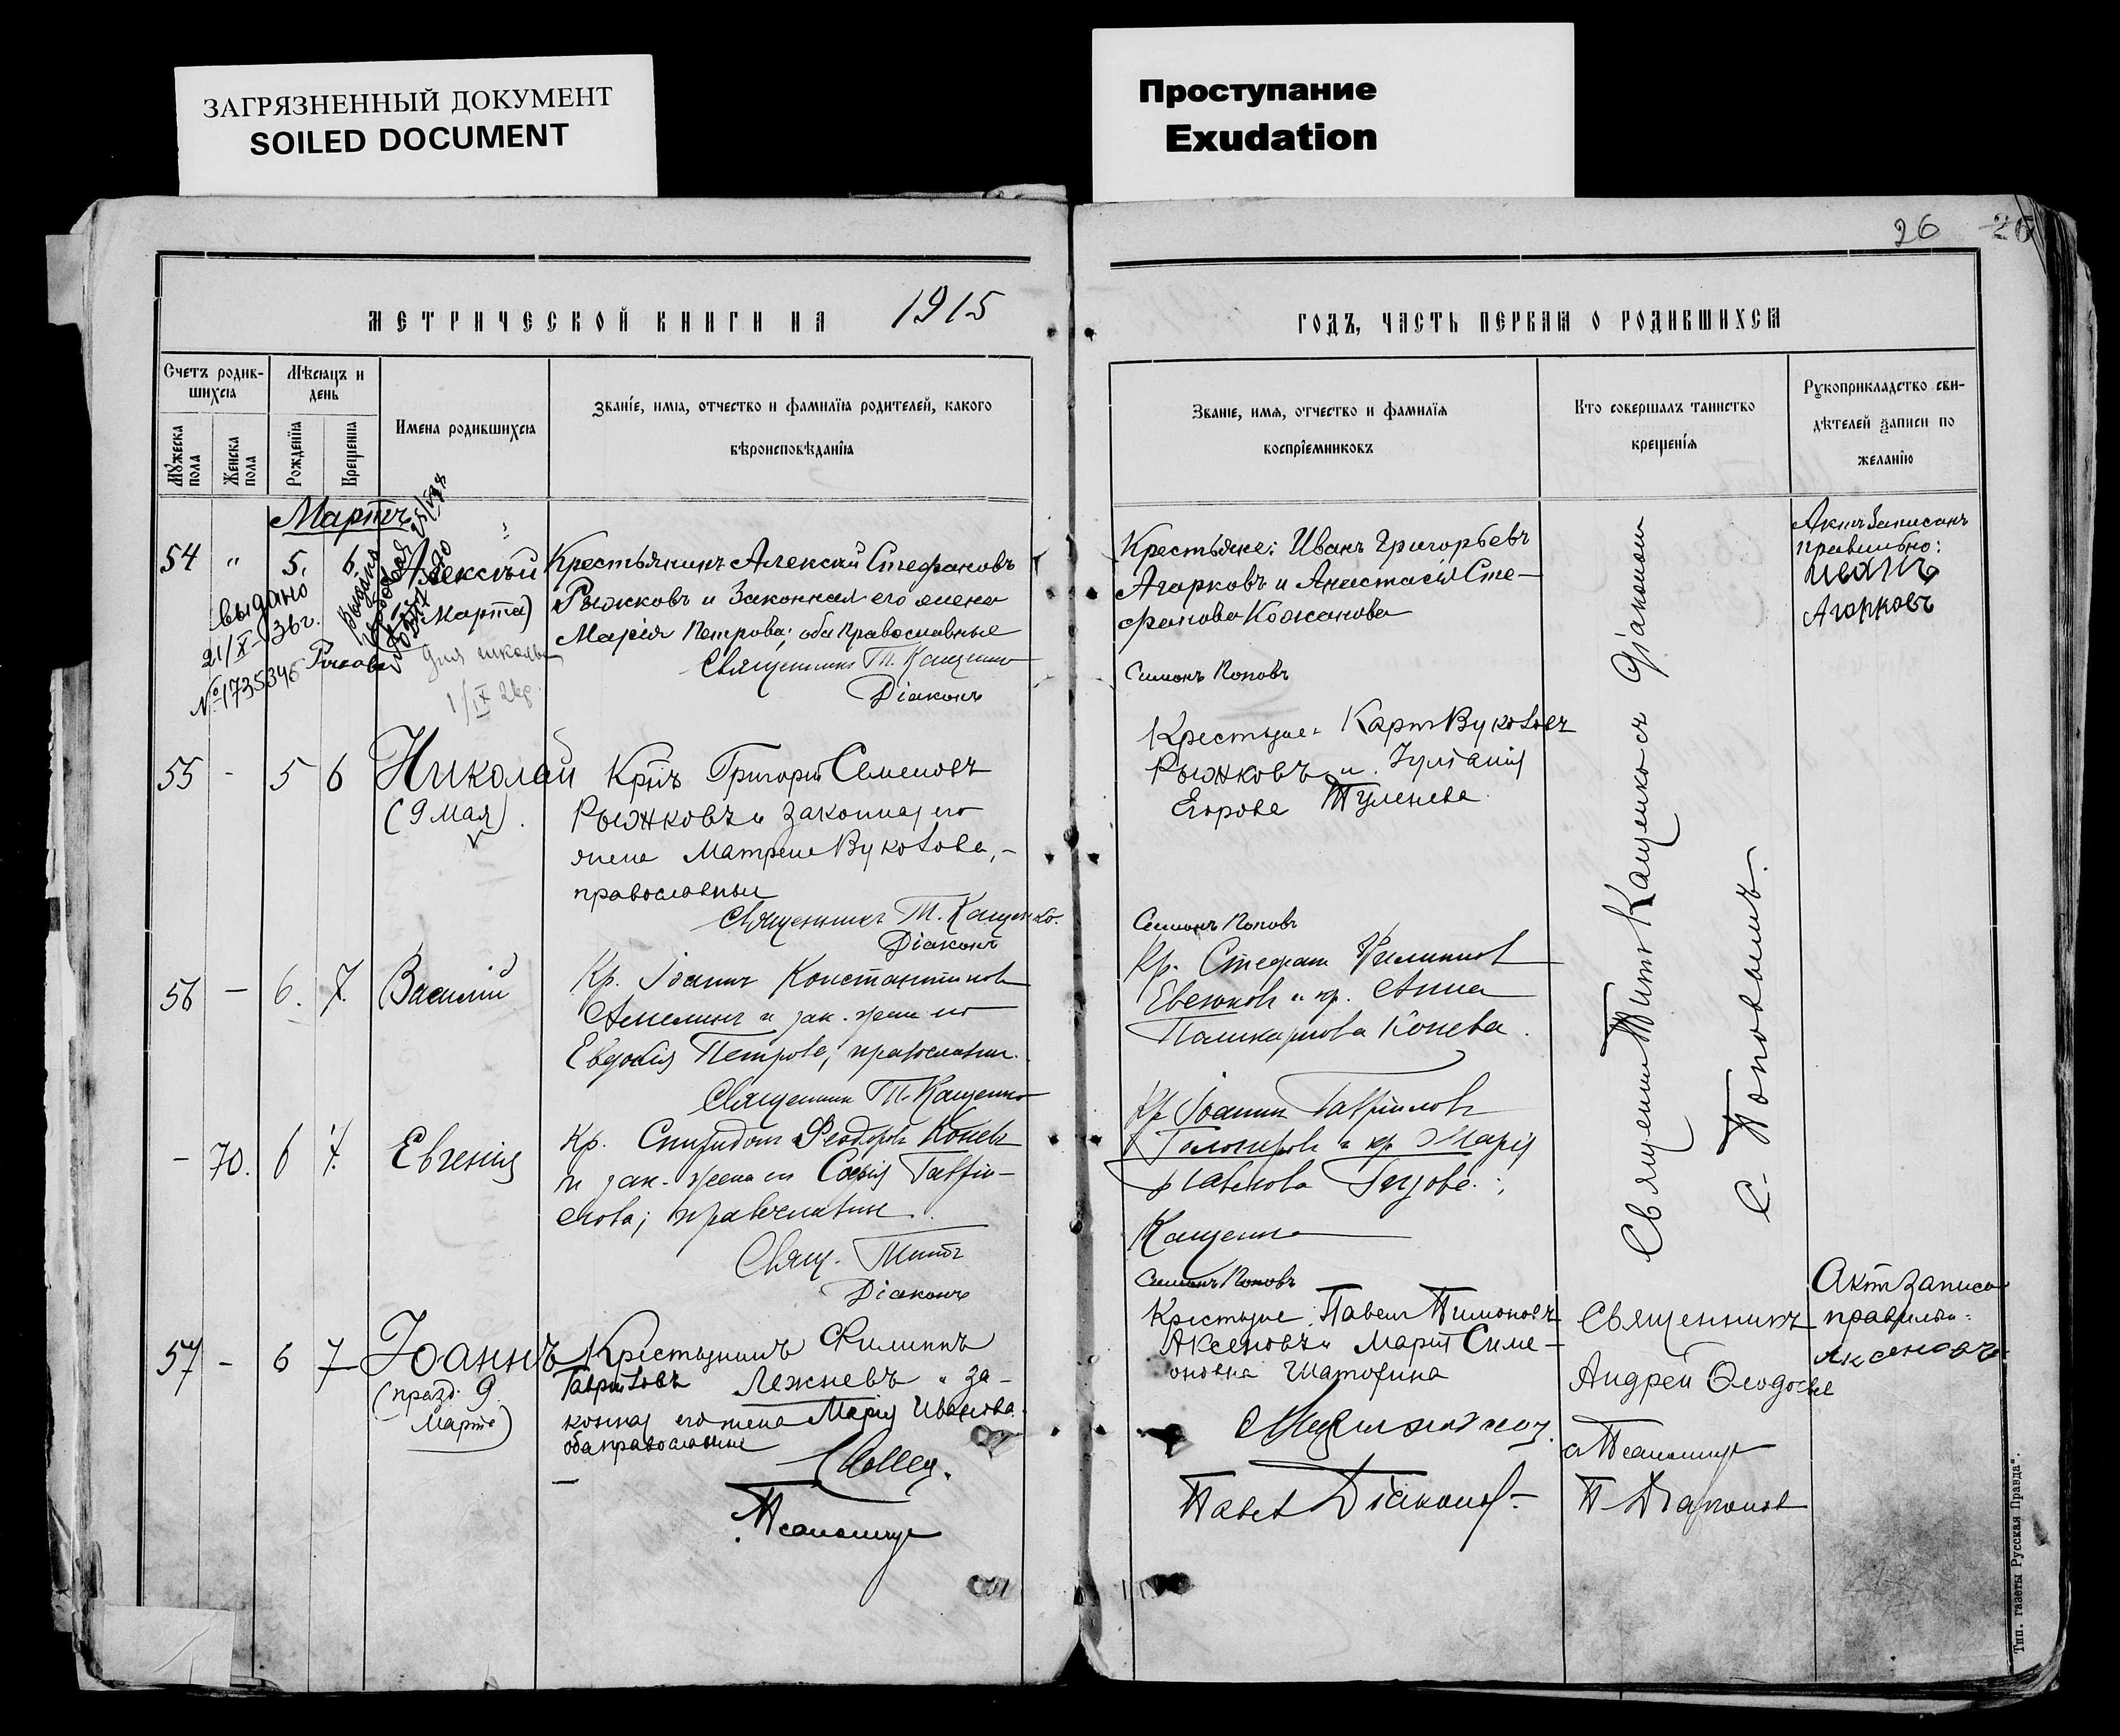 ЗАГРЯЗНЕННЫЙ ДОКУМЕНТ
SOILED DOCUMENT
Проступание
Exudation
26
26
МЕТРИЧЕСКОЙ КНИГИ НА 1915
ГОДЪ, ЧАСТЬ ПЕРВАЯ О РОДИВШИХСЯ
Счетъ родив-
шихся
Мѣсяцъ и
день
Мужеска
пола
Женска
пола
Рожденїя
Крещенїя
Имена родившихся
Званїе, имя, отчество и фамилїя родителей, какого
вѣроисповѣданїя
Званїе, имя, отчество и фамилїя
воспрїемниковъ
Кто совершалъ таинство
крещенїя
Рукоприкладство сви-
дѣтелей записи по
желанїю
Мартъ
54 " 5. 6. Алексѣй
Марта)
выдано
21/X-36г.
№1735396
для школы
Крестьянинъ Алексѣй Стефановъ
Рыжковъ и Законная его жена
Марія Петрова; оба Православные
Священникъ Т. Кащенко
Діаконъ
Крестьяне: Иванъ Григорьевъ
Агарковъ и Анастасія Сте-
фанова Кожанова
Симонъ Поповъ
Актъ Записанъ
правильно:
Иванъ
Агарковъ
55 - 5 6 Николай
(9 мая).
Кр-нъ Григорій Семеновъ
Рыжковъ и законная его
жена Матрена Вуколова,-
православные
Священникъ Т. Кащенко.
Діаконъ
Крестьяне: Карпъ Вуколовъ
Рыжковъ и Іуліанія
Егорова Туленева.
Симонъ Поповъ
56 - 6. 7. Василій
Кр. Іоаннъ Константиновъ
Амелинъ и зак. жена его
Евдокія Петрова, православн.
Священникъ Т. Кащенко
Кр. Стефанъ Филиппов
Евсюковъ и кр. Анна
Поликарпова Конева.
- 70. 6 7. Евгенія
Кр. Спиридонъ Феодоровъ Коневъ
и зак. жена его Софія Гаврiи-
лова; православные
Свящ. Титъ
Діаконъ
Кр Іоаннъ Гаврииловъ
и кр Марія
Кащенко
Симонъ Поповъ
Священникъ Титъ Кащенко съ діакономъ
С. Поповымъ.
57 - 6 7 Іоаннъ
(празд. 9.
Марта)
Крестьянинъ Филиппъ
Гавриловъ Лежневъ и за-
конная его жена Марія Иванова.
оба православные
Псаломщикъ
Крестьяне: Павелъ Тимоновъ
Аксеновъ и Марія Симе-
оновна Шатохина
Павел Діаконов
Священникъ
Андрей
и Псаломщик
П. Діаконов
Актъ записа
правильн:
Аксеновъ
Тип. газеты „Русская Правда".